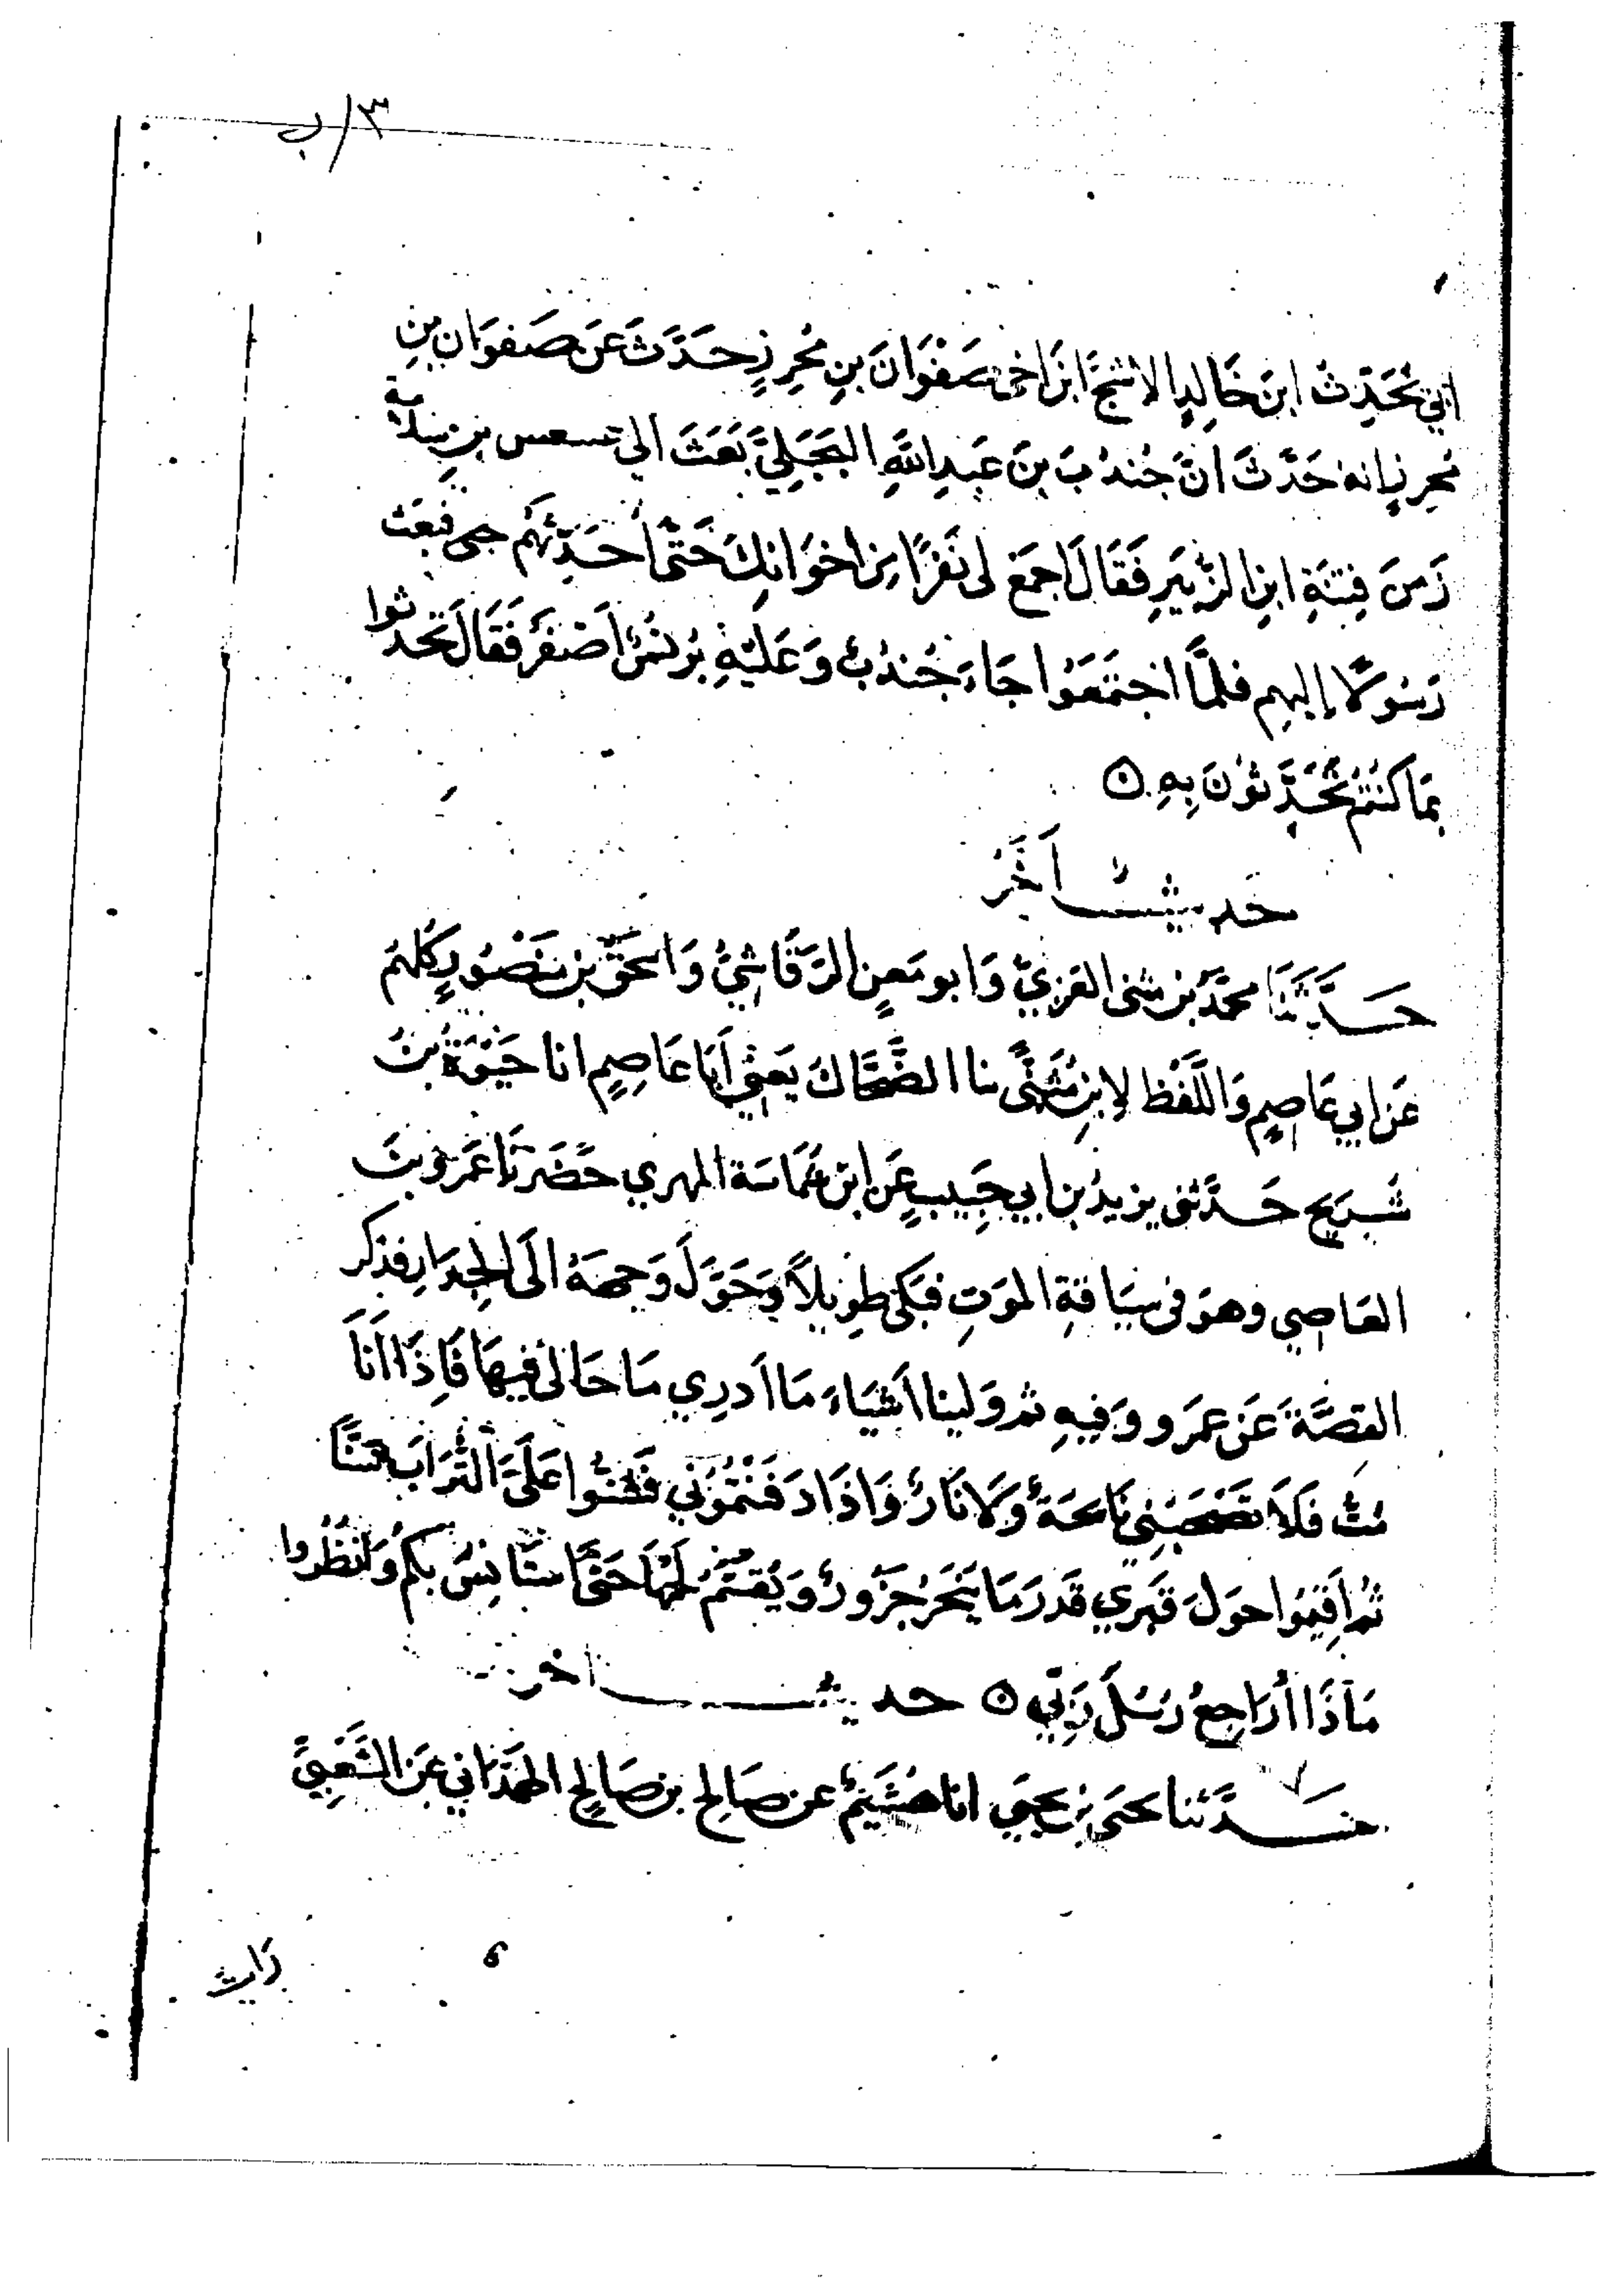 ٣/ب
أبي يُحَدِّثُ ابنَ خَالِدٍ الاشجَّ ابنَ اخي صَفْوَانَ بنِ مُحرِزٍ حَدَّثَ عَنْ صَفوَانَ بنِ
مُحرِزٍ انه حَدَّثَ انَّ جُندُبَ بنَ عَبدِ اللهِ البَجَلِيَّ بَعَثَ الي عسعس بن سلامة
زَمنَ فِتنَةِ ابنِ الزُّبَيرِ فَقَالَ اجمَع لى نَفَرًا مِن اخوَانِكَ حَتَّى احَدِّثَهُم فبَعَث
رَسُولًا إليهم فلمَّا اجتَمَعُوا جَاءَ جُندُبٌ وَعَلَيْهِ بُرنُسٌ اَصْفَرُ فَقَالَ تَحَدثوا
بمَا كنتُم تُحَدِّثونَ بِهِ ۞
حَديثٌ اٰخَرُ
حَدَّثَنَا محمَّدُ بن مثنى العَنزيُّ وَابو مَعنٍ الرَّقَاشِيُّ وَاسحَقُ بن مَنصُورٍ كُلهُم
عَن ابي عَاصِمٍ وَاللَّفظ لاِبنِ مُثَنًّى نا الضَّحَّاكُ يَعني اَبَا عَاصِمٍ انا حَيْوَةُ بنُ
شُرَيحٍ حَدَّثني يزيدُ بن ابي حَبِيبٍ عَن ابن شُمَاسَة المهري حَضَرنَا عَمرَو بنَ
العَاصِي وهوَ في سِيَاقَةِ الموَتِ فبَكَى طوِيلاً وَحَوَّلَ وَجهَهُ الَى الجِدَارِ فذكر
القصَّةَ عَن عمرٍو وَفيهِ ثم وَلينا اَشيَاءَ مَا اَدرِي مَا حَالى فيهَا فَإِذَا اَنَا
مُتُّ فَلاَ تَصْحَبْنِي نَائحَةٌ وَلَا نَارٌ وَاذَا دَفَنْتُمُونِي فَشنُّوا عَلَيَّ التُّرَابَ شَنًّا
ثُم اَقِيمُوا حَولَ قَبري قَدرَ مَا يُنحَرُ جَزُورٌ وَيُقسَمُ لحمُهَا حَتَّى استَانِسَ بكُم وَانظُرُوا
مَاذَا اُرَاجعُ رُسُلَ رَبّي ۞ حديثٌ اخر
حَدَّثنا يحيَى بن يحيَى انا هُشَيمٌ عن صَالح بن صَالحٍ الهَمدَاني عَن الشَّعبِيِّ
رَايتُ